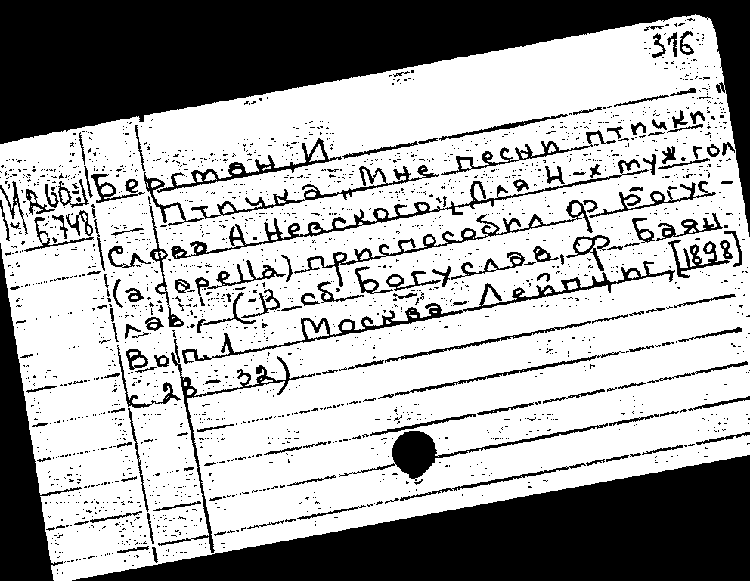 316
И 260:1
И
Б.748
Бергман, И
Птичка „Мне песни птички..."
Слова А. Невского. Для 4-х муж. гол
(a capella) приспособил Фр. Богус-
лав. (-В сб. Богуслав, Фр. Баян.
Вып. 1 Москва - Лейпциг, [1898]
с. 28 - 32)